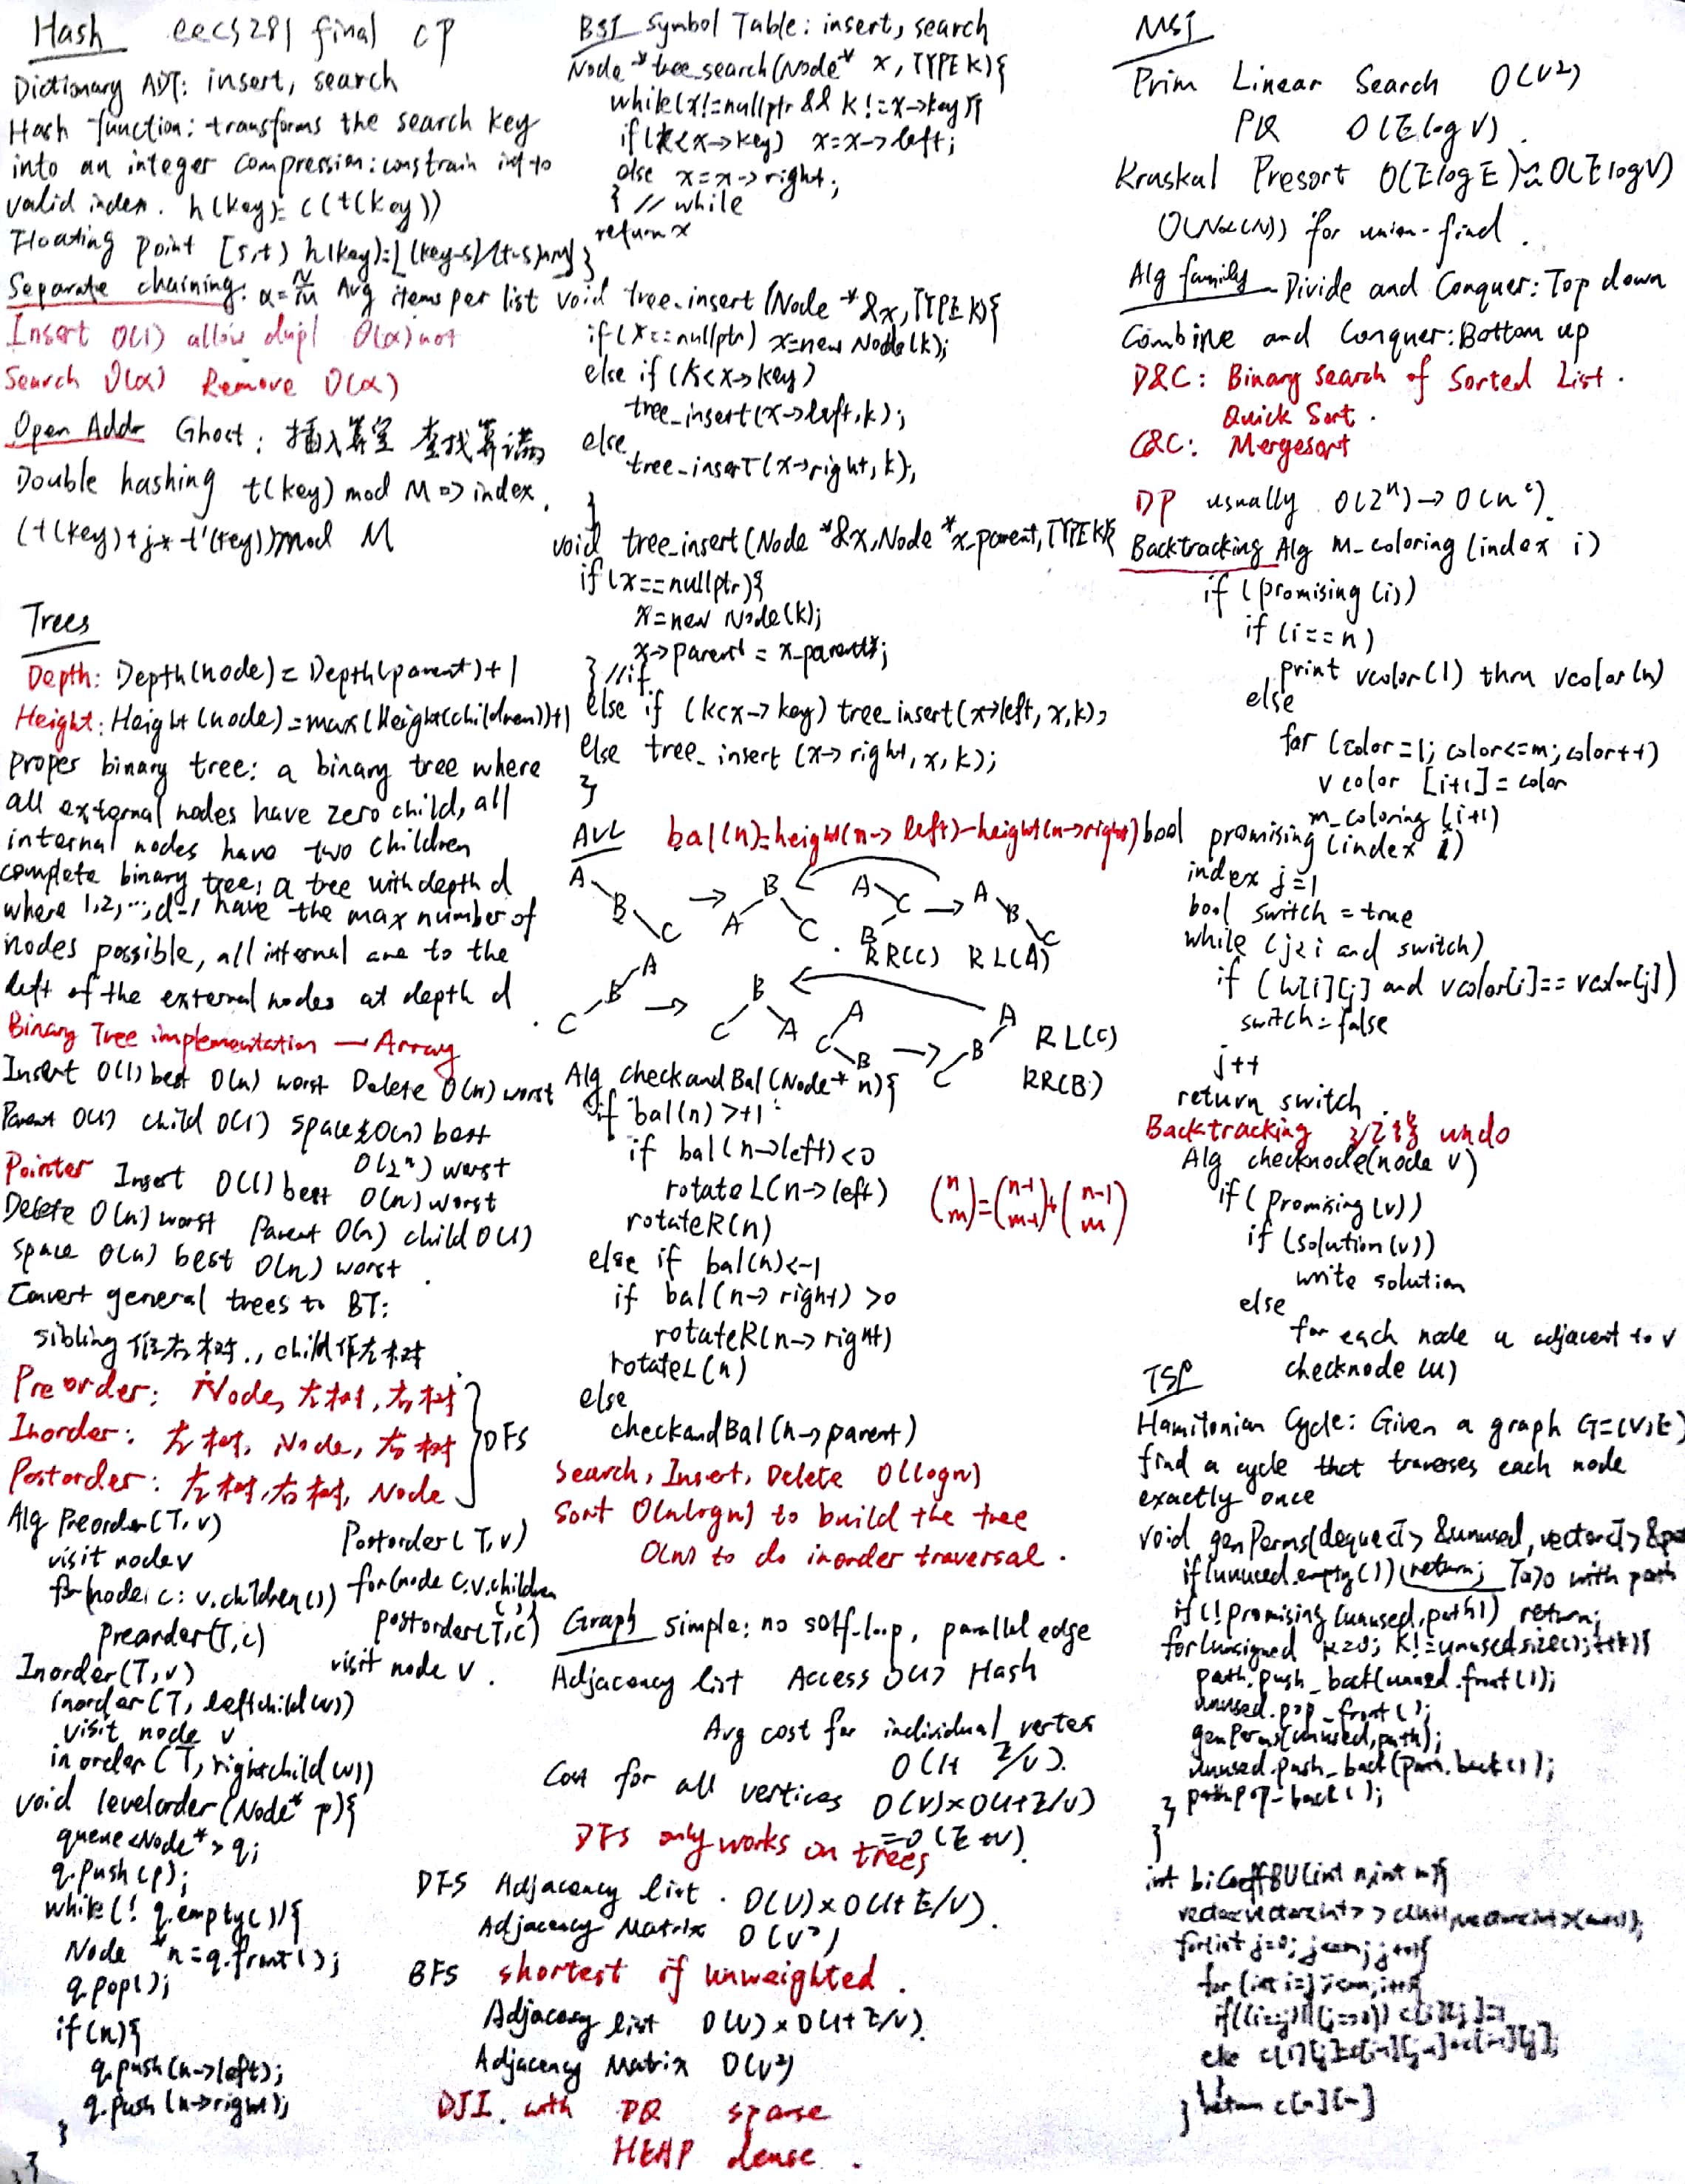 Hash eecs281 final cp
Dictionary ADT: insert, search
Hash function: transforms the search key
into an integer compression: constrain int to
valid index. h(key)= c(t(key))
Floating point [s,t) h(key)=⌊(key-s)/(t-s)*M⌋
Separate chaining: α=N/M Avg items per list
Insert O(1) allow dupl O(α) not
Search O(α) Remove O(α)
Open Addr Ghost: 插入算空 查找算满
Double hashing t(key) mod M => index.
(t(key)+j*t'(key)) mod M
Trees
Depth: Depth(node) = Depth(parent)+1
Height: Height(node)=max(Height(children))+1
proper binary tree: a binary tree where
all external nodes have zero child, all
internal nodes have two children
complete binary tree: a tree with depth d
where 1,2,...,d-1 have the max number of
nodes possible, all internal are to the
left of the external nodes at depth d
Binary Tree implementation — Array
Insert O(1) best O(n) worst Delete O(n) worst
Parent O(1) child O(1) space O(n) best
O(2^n) worst
Pointer Insert O(1) best O(n) worst
Delete O(n) worst Parent O(n) child O(1)
space O(n) best O(n) worst.
Convert general trees to BT:
sibling 作右树., child作左树
Preorder: Node, 左树, 右树
Inorder: 左树, Node, 右树 DFS
Postorder: 左树, 右树, Node
Alg Preorder(T,v)
visit node v
for(node c: v.children())
preorder(T,c)
Postorder(T,v)
for(node c:v.children
())
postorder(T,c)
visit node v.
Inorder(T,v)
inorder(T, leftchild(v))
visit node v
inorder(T, rightchild(v))
void levelorder(Node* p){
queue<Node*> q;
q.push(p);
while(! q.empty()){
Node *n=q.front();
q.pop();
if(n){
q.push(n->left);
q.push(n->right);
}
}
}
BST Symbol Table: insert, search
Node *tree_search(Node* x, TYPE k){
while(x!=nullptr && k!=x->key){
if(k<x->key) x=x->left;
else x=x->right;
} // while
return x
}
void tree_insert(Node *&x, TYPE k){
if(x==nullptr) x=new Node(k);
else if(k<x->key)
tree_insert(x->left,k);
else
tree_insert(x->right,k);
}
void tree_insert(Node *&x,Node *x_parent, TYPE k){
if(x==nullptr){
x=new Node(k);
x->parent = x_parent;
} //if
else if (k<x->key) tree_insert(x->left, x,k);
else tree_insert (x->right, x, k);
}
AVL bal(n)=height(n->left)-height(n->right)
A B C → B A C A C B → A B C
RR(C) RL(A)
A B C → B C A A C B → A B C RL(C)
RR(B)
Alg checkandBal(Node* n){
if bal(n) >+1
if bal(n->left)<0
rotateL(n->left)
rotateR(n)
else if bal(n)<-1
if bal(n->right) >0
rotateR(n->right)
rotateL(n)
else
checkandBal(n->parent)
(n m)=(n-1 m-1)+(n-1 m)
Search, Insert, Delete O(logn)
Sort O(nlogn) to build the tree
O(n) to do inorder traversal.
Graph simple: no self-loop, parallel edge
Adjacency list Access O(1) Hash
Avg cost for individual vertex
O(1+ E/V).
Cost for all vertices O(V)×O(1+E/V)
=O(E+V).
DFS only works on trees
DFS Adjacency list. O(V)×O(1+E/V).
Adjacency Matrix O(V²)
BFS shortest if unweighted.
Adjacency list O(V)×O(1+E/V).
Adjacency Matrix O(V²)
DJI. with PQ sparse
HEAP dense.
MST
Prim Linear Search O(V²)
PQ O(ElogV).
Kruskal Presort O(ElogE)≈O(ElogV)
O(Nα(N)) for union-find.
Alg family Divide and Conquer: Top down
Combine and Conquer: Bottom up
D&C: Binary Search of Sorted List.
Quick Sort.
C&C: Mergesort
DP usually O(2^n)→O(n^c).
Backtracking Alg m_coloring (index i)
if (promising(i))
if (i==n)
print vcolor(1) thru vcolor(n)
else
for (color=1; color<=m; color++)
vcolor [i+1]=color
m_coloring (i+1)
bool promising (index i)
index j=1
bool switch = true
while (j<i and switch)
if (W[i][j] and vcolor[i]==vcolor[j])
switch=false
j++
return switch.
Backtracking undo
Alg checknode(node v)
if( promising(v))
if (solution(v))
write solution
else
for each node u adjacent to v
checknode (u)
TSP
Hamitonian Cycle: Given a graph G=(V,E)
find a cycle that traverses each node
exactly once
void genPerms(deque<T> &unused, vector<T> &pa
if(unused.empty()){return; with path
if(!promising(unused,path)) return;
for(unsigned k=0; k!=unused.size();++k){
path.push_back(unused.front());
unused.pop_front();
genPerms(unused,path);
unused.push_back(path.back());
path.pop_back();
}
}
int biCoeffBU(int n,int m){
for(int j=0; j<=m; j++){
for (int i=j;i<=n;i++){
if((i==j)||(j==0)) c[i][j]=1
else c[i][j]=c[i-1][j-1]+c[i-1][j];
}}
} return c[n][m]